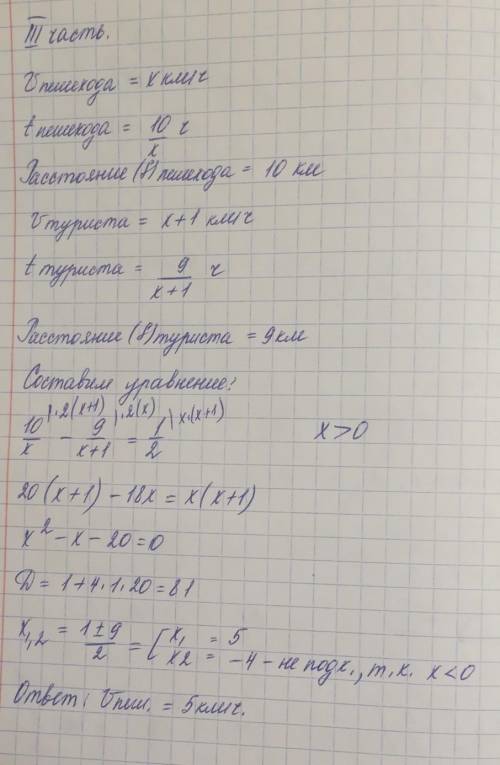 III часть.
Vпешехода = x км/ч
tпешехода = 10/x ч
Расстояние (S)пешехода = 10 км
Vтуриста = x+1 км/ч
tтуриста = 9/(x+1) ч
Расстояние (S)туриста = 9 км
Составим уравнение:
10/x |·2(x+1) − 9/(x+1) |·2(x) = 1/2 |x·(x+1) x>0
20(x+1) − 18x = x(x+1)
x² − x − 20 = 0
D = 1+4·1·20 = 81
x1,2 = (1±9)/2 = [x1 = 5
x2 = −4 – не подх., т.к. x<0
Ответ: Vпеш. = 5 км/ч.